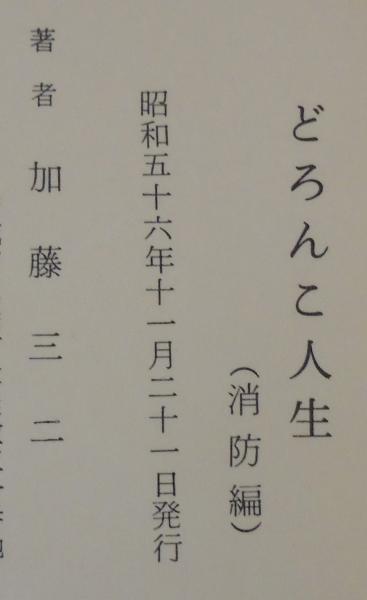 どろんこ人生
（消防編）
昭和五十六年十一月二十一日発行
著者 加藤三二